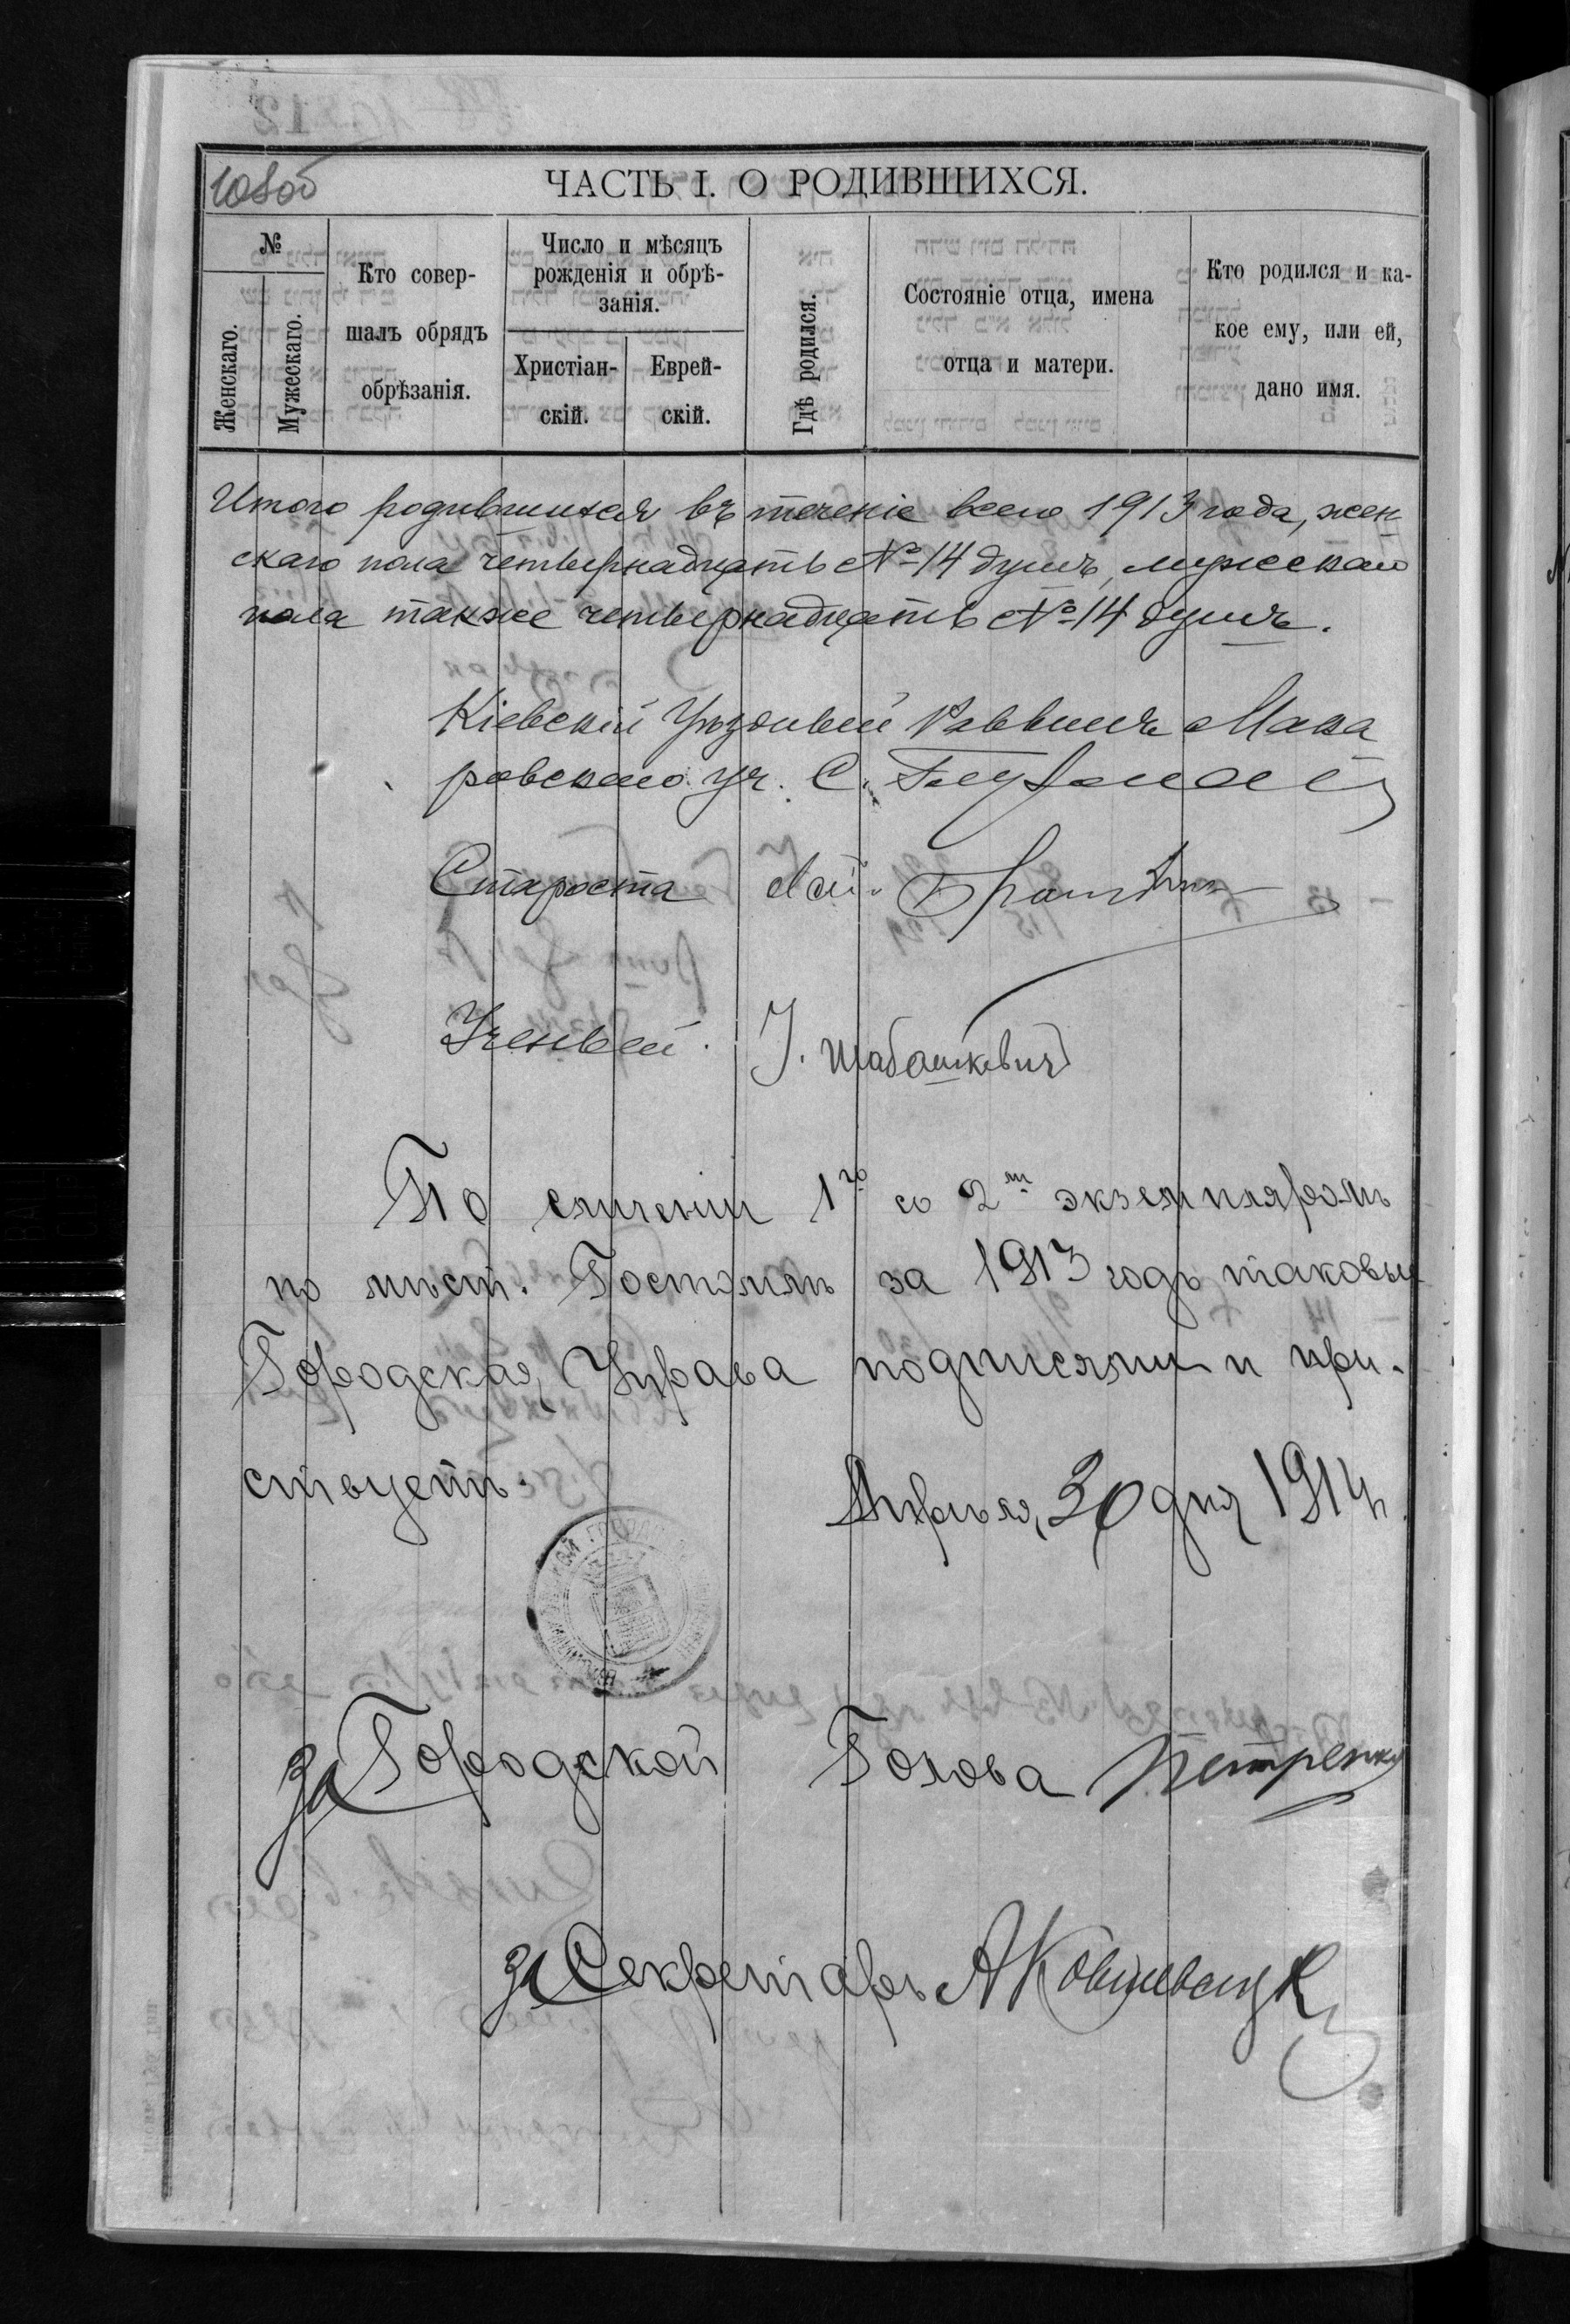 108об
ЧАСТЬ I. О РОДИВШИХСЯ.
№
Женскаго.
Мужескаго.
Кто совер-
шалъ обрядъ
обрѣзанія.
Число и мѣсяцъ
рожденія и обрѣ-
занія.
Христіан-
скій.
Еврей-
скій.
Гдѣ родился.
Состояніе отца, имена
отца и матери.
Кто родился и ка-
кое ему, или ей,
дано имя.
Итого родившихся въ теченіе всего 1913 года, жен
скаго пола четырнадцать №14 душъ, мужескаго
пола также четырнадцать №14 душъ.
Кіевскій Уѣздный Раввинъ Мака
ровскаго уч. С.
Староста
Ученый. І. Шабашкевич
По сличеніи 1го со 2м экземпляромъ
по мѣст. Гостомлю за 1913 годъ таковыя
Городская Управа подписями и при-
ствуетъ.
Апрѣля 30 дня 1914
За Городской Голова Петренко
За Секретарь